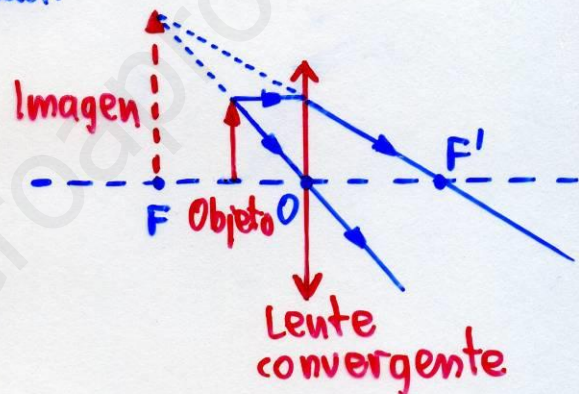 Imagen
F'
F Objeto O
Lente
convergente